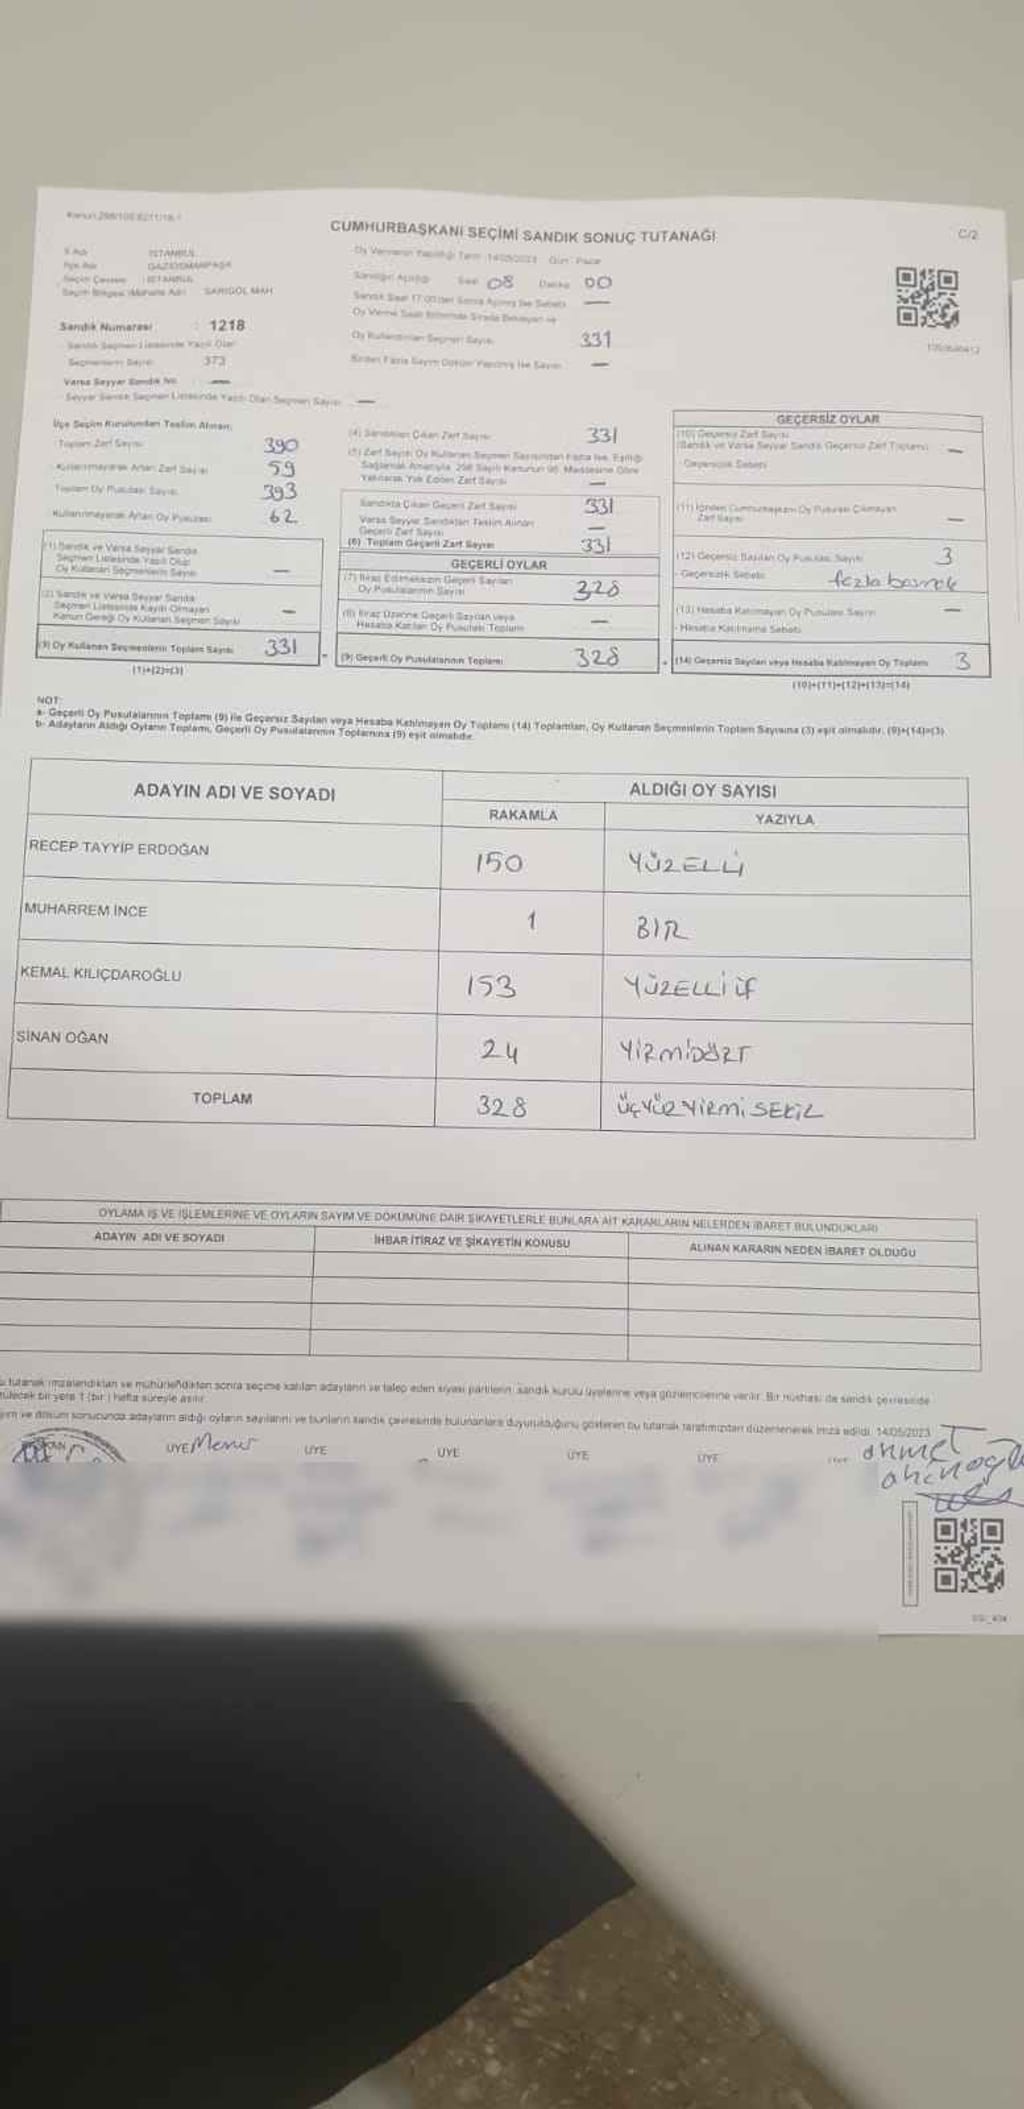 Kanun:298/105
CUMHURBAŞKANI SEÇİMİ SANDIK SONUÇ TUTANAĞI
C/2
İl Adı İSTANBUL
İlçe Adı GAZİOSMANPAŞA
Seçim Çevresi İSTANBUL
Seçim Bölgesi (Mahalle Adı) SARIGÖL MAH
Oy Vermenin Yapıldığı Tarih :14/05/2023 Gün : Pazar
Sandığın Açıldığı Saat 08 Dakika 00
Sandık Saat 17.00'den Sonra Açılmış İse Sebebi —
Oy Verme Saati Bitiminde Sırada Bekleyen ve
Oy Kullandırılan Seçmen Sayısı 331
Birden Fazla Sayım Döküm Yapılmış İse Sayısı —
Sandık Numarası : 1218
Sandık Seçmen Listesinde Yazılı Olan
Seçmenlerin Sayısı 373
Varsa Seyyar Sandık No —
Seyyar Sandık Seçmen Listesinde Yazılı Olan Seçmen Sayısı —
İlçe Seçim Kurulundan Teslim Alınan:
Toplam Zarf Sayısı 390
Kullanılmayarak Artan Zarf Sayısı 59
Toplam Oy Pusulası Sayısı 393
Kullanılmayarak Artan Oy Pusulası 62
(1) Sandık ve Varsa Seyyar Sandık
Seçmen Listesinde Yazılı Olup
Oy Kullanan Seçmenlerin Sayısı —
(2) Sandık ve Varsa Seyyar Sandık
Seçmen Listesinde Kayıtlı Olmayan
Kanun Gereği Oy Kullanan Seçmen Sayısı —
(3) Oy Kullanan Seçmenlerin Toplam Sayısı 331
(1)+(2)=(3)
(4) Sandıktan Çıkan Zarf Sayısı 331
(5) Zarf Sayısı Oy Kullanan Seçmen Sayısından Fazla İse, Eşitliği
Sağlamak Amacıyla, 298 Sayılı Kanunun 98. Maddesine Göre
Yakılarak Yok Edilen Zarf Sayısı —
Sandıkta Çıkan Geçerli Zarf Sayısı 331
Varsa Seyyar Sandıktan Teslim Alınan
Geçerli Zarf Sayısı —
(6) Toplam Geçerli Zarf Sayısı 331
GEÇERLİ OYLAR
(7) İtiraz Edilmeksizin Geçerli Sayılan
Oy Pusulalarının Sayısı 328
(8) İtiraz Üzerine Geçerli Sayılan veya
Hesaba Katılan Oy Pusulası Toplamı —
(9) Geçerli Oy Pusulalarının Toplamı 328
GEÇERSİZ OYLAR
(10) Geçersiz Zarf Sayısı
(Sandık ve Varsa Seyyar Sandık Geçersiz Zarf Toplamı) —
- Geçersizlik Sebebi
(11) İçinden Cumhurbaşkanı Oy Pusulası Çıkmayan
Zarf Sayısı —
(12) Geçersiz Sayılan Oy Pusulası Sayısı 3
- Geçersizlik Sebebi fazla basmak
(13) Hesaba Katılmayan Oy Pusulası Sayısı —
- Hesaba Katılmama Sebebi
(14) Geçersiz Sayılan veya Hesaba Katılmayan Oy Toplamı 3
(10)+(11)+(12)+(13)=(14)
NOT:
a- Geçerli Oy Pusulalarının Toplamı (9) ile Geçersiz Sayılan veya Hesaba Katılmayan Oy Toplamı (14) Toplamları, Oy Kullanan Seçmenlerin Toplam Sayısına (3) eşit olmalıdır. (9)+(14)=(3)
b- Adayların Aldığı Oyların Toplamı, Geçerli Oy Pusulalarının Toplamına (9) eşit olmalıdır.
ADAYIN ADI VE SOYADI ALDIĞI OY SAYISI
RAKAMLA YAZIYLA
RECEP TAYYİP ERDOĞAN 150 YÜZELLİ
MUHARREM İNCE 1 BIR
KEMAL KILIÇDAROĞLU 153 YÜZELLİ
SİNAN OĞAN 24 YİRMİDÖRT
TOPLAM 328 ÜÇYÜZYİRMİ
OYLAMA İŞ VE İŞLEMLERİNE VE OYLARIN SAYIM VE DÖKÜMÜNE DAİR ŞİKAYETLERLE BUNLARA AİT KARARLARIN NELERDEN İBARET BULUNDUKLARI
ADAYIN ADI VE SOYADI İHBAR İTİRAZ VE ŞİKAYETİN KONUSU ALINAN KARARIN NEDEN İBARET OLDUĞU
tutanak imzalandıktan ve mühürlendikten sonra seçime katılan adayların ve talep eden siyasi partilerin, sandık kurulu üyelerine veya gözlemcilerine verilir. Bir nüshası de sandık çevresinde
bir yere 1 (bir ) hafta süreyle asılır.
ve döküm sonucunda adayların aldığı oyların sayılarını ve bunların sandık çevresinde bulunanlara duyurulduğunu gösteren bu tutanak tarafımızdan düzenlenerek imza edildi. 14/05/2023
ÜYE ÜYE ÜYE ÜYE ÜYE
Ahmet